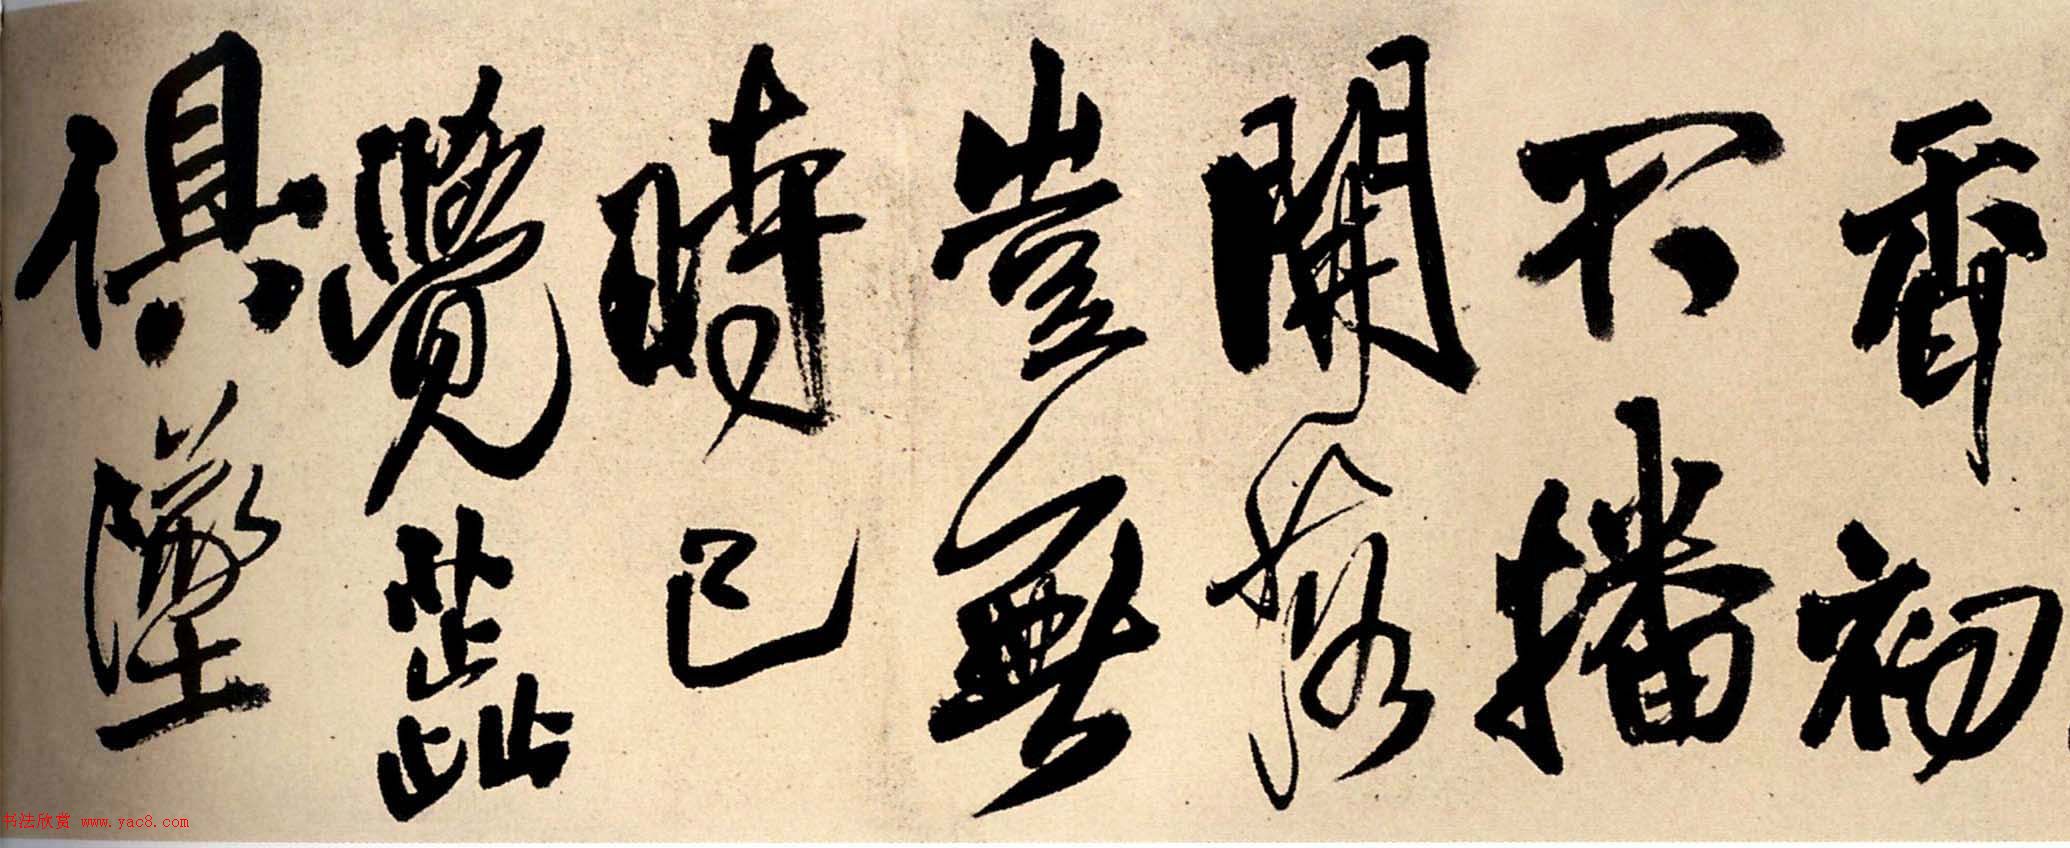 香初
不播
開落
豈無
時已
覺蕋
俱墜
书法欣赏 www.yac8.com